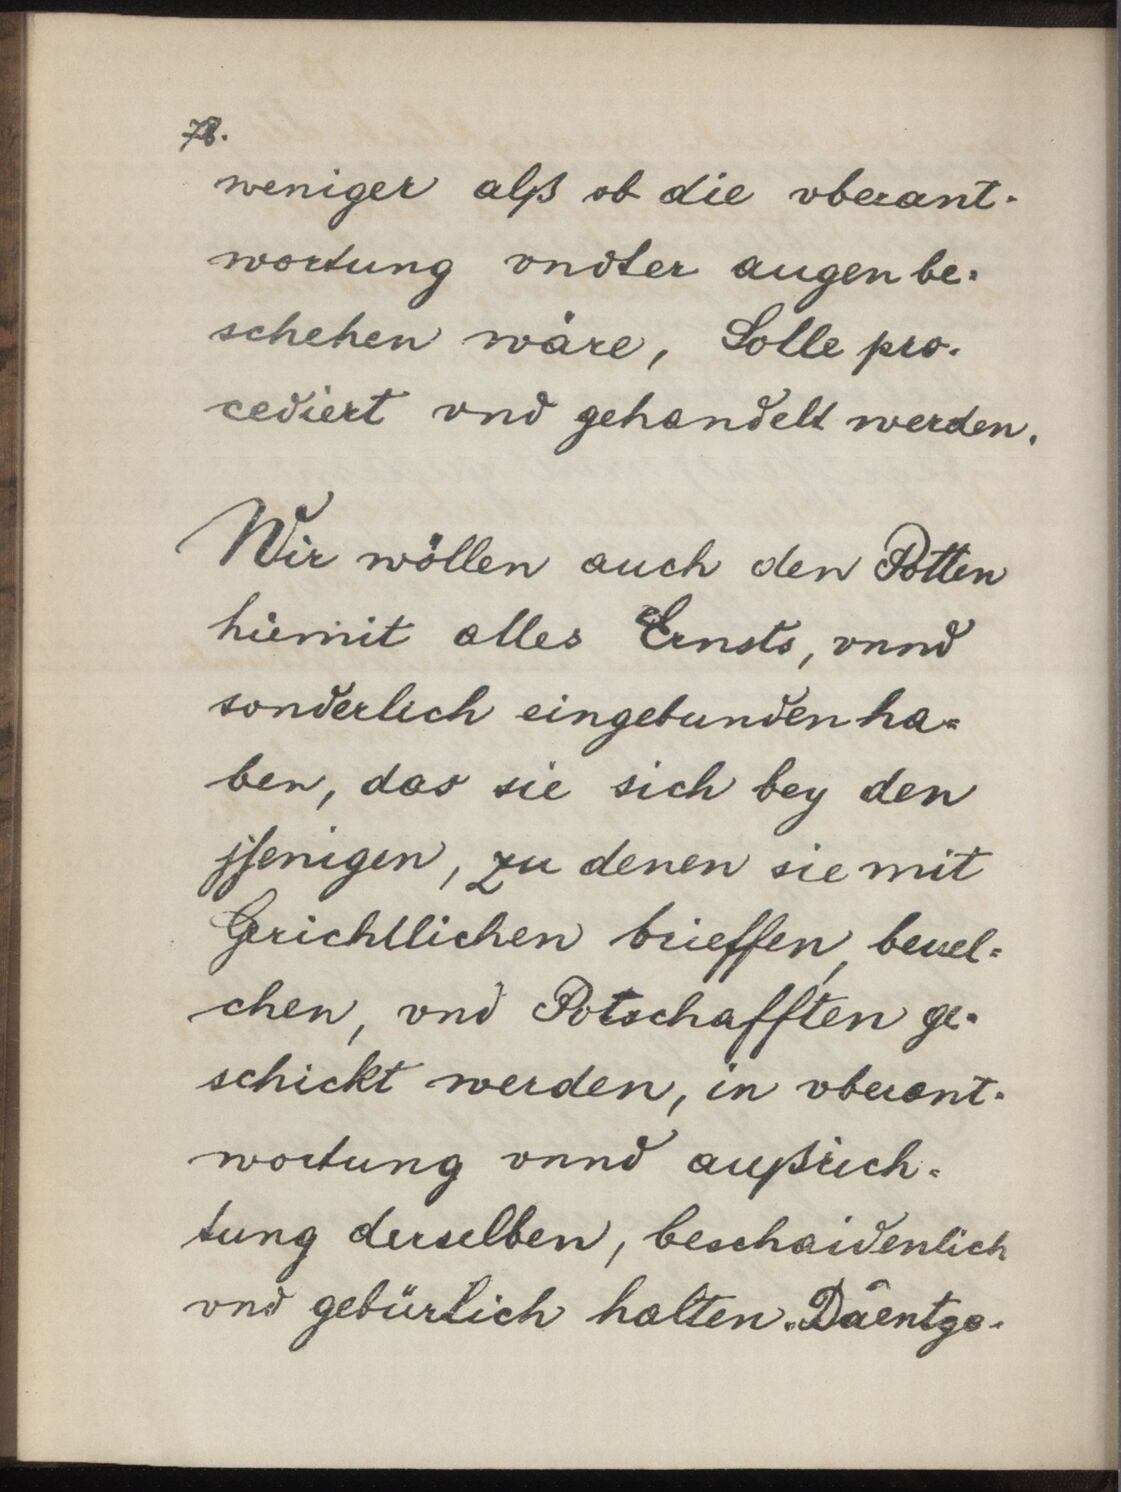 78.
weniger alß ob die vberant-
wortung vndter augen be-
schehen wäre, Solle pro-
cediert vnd gehandelt werden.
Wir wöllen auch den Potten
hiemit alles Ernsts, vnnd
sonderlich eingebunden ha-
ben, das sie sich bey den
jhenigen, zu denen sie mit
Gerichtlichen brieffen, beuel-
chen, vnd Potschafften ge-
schickt werden, in vberant-
wortung vnnd außrich-
tung derselben, beschaidenlich
vnd gebürlich halten. Da entge-